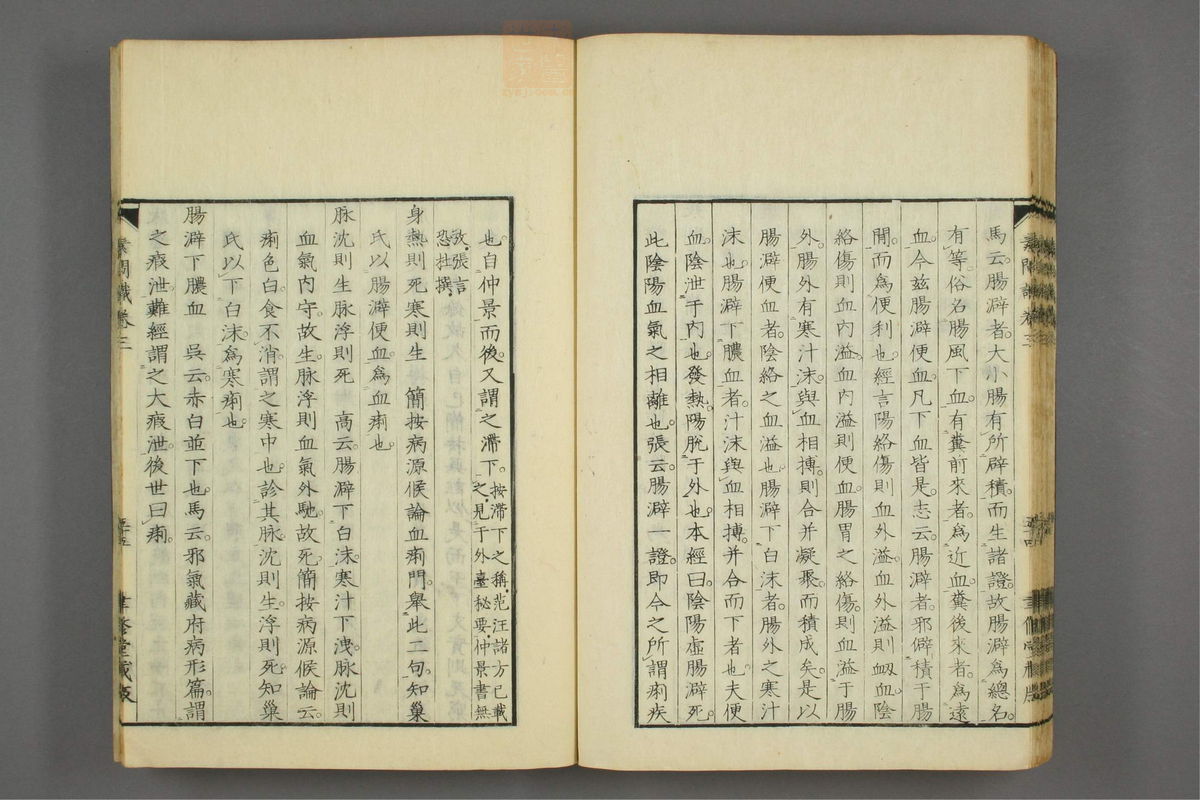 馬云腸澼者大小腸有所辟積而生諸證故腸澼爲總名
有等俗名腸風下血有糞前來者爲近血糞後來者爲遠
血今茲腸澼便血凡下血皆是志云腸澼者邪僻積于腸
間而爲便利也經言陽絡傷則血外溢血外溢則衂血陰
絡傷則血内溢血内溢則便血腸胃之絡傷則血溢于腸
外腸外有寒汁沫與血相摶則合并凝聚而積成矣是以
腸澼便血者陰絡之血溢也腸澼下白沫者腸外之寒汁
沫也腸澼下膿血者汁沫與血相摶并合而下者也夫便
血陰泄于内也發熱陽脫于外也本經曰陰陽虛腸澼死
此陰陽血氣之相離也張云腸澼一證即今之所謂痢疾
也自仲景而後又謂之滯下按滯下之稱范汪諸方已載
之見于外臺秘要仲景書無
攷張言
恐杜撰
身熱則死寒則生　簡按病源候論血痢門舉此二句知巢
氏以腸澼便血爲血痢也
脉沈則生脉浮則死　高云腸澼下白沫寒汁下洩脉沈則
血氣内守故生脉浮則血氣外馳故死簡按病源候論云
痢色白食不消謂之寒中也診其脉沈則生浮則死知巢
氏以下白沫爲寒痢也
腸澼下膿血　吳云赤白並下也馬云邪氣藏府病形篇謂
之瘕泄難經謂之大瘕泄後世曰痢
素問識卷三